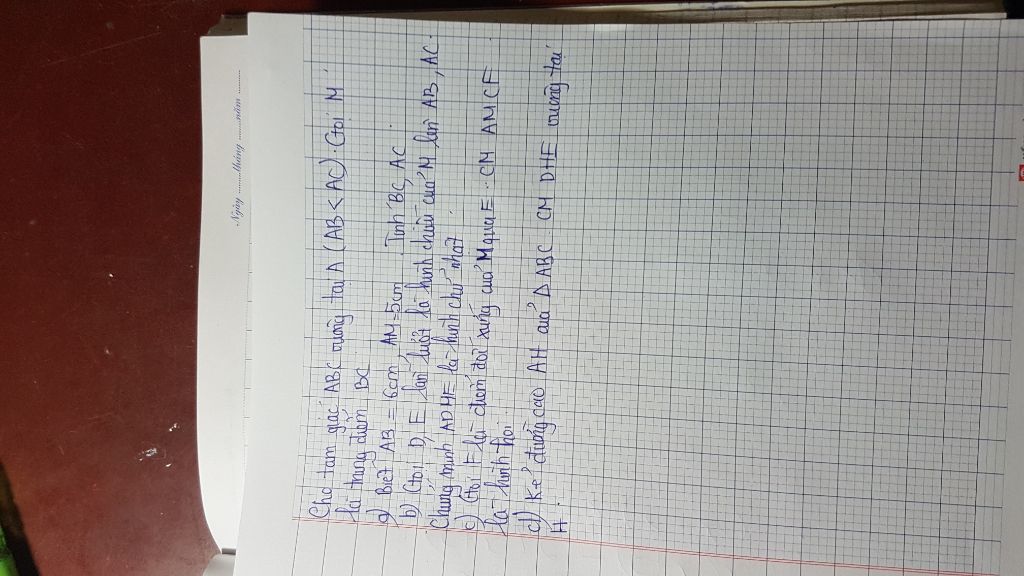 Ngày ........tháng ........năm ........
Cho tam giác ABC vuông tại A (AB < AC). Gọi M
là trung điểm BC
a) Biết AB = 6cm, AM=5cm. Tính BC, AC.
b) Gọi D, E lần lượt là hình chiếu của M lên AB, AC.
Chứng minh ADME là hình chữ nhật
c) Gọi F là điểm đối xứng của M qua E. CM AMCF
là hình thoi.
d) Kẻ đường cao AH của Δ ABC. CM DHE vuông tại
H.